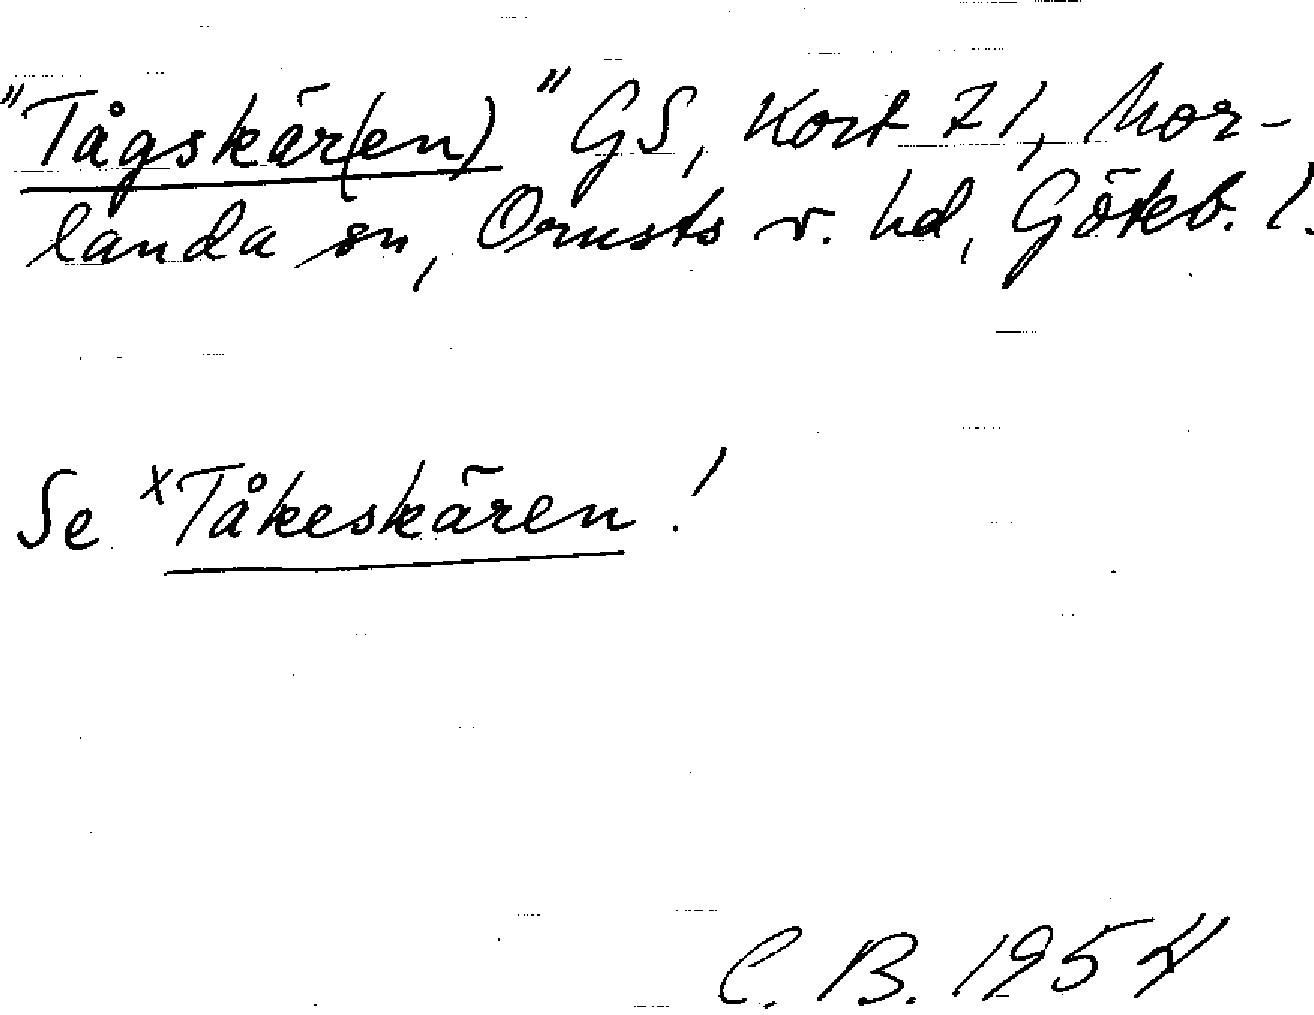 "Tågskär(en)" GS, Kort 71, Mor-
landa sn, Orusts v. hd, Göteb. l.
Se ×Tåkeskären!
C. B. 1954